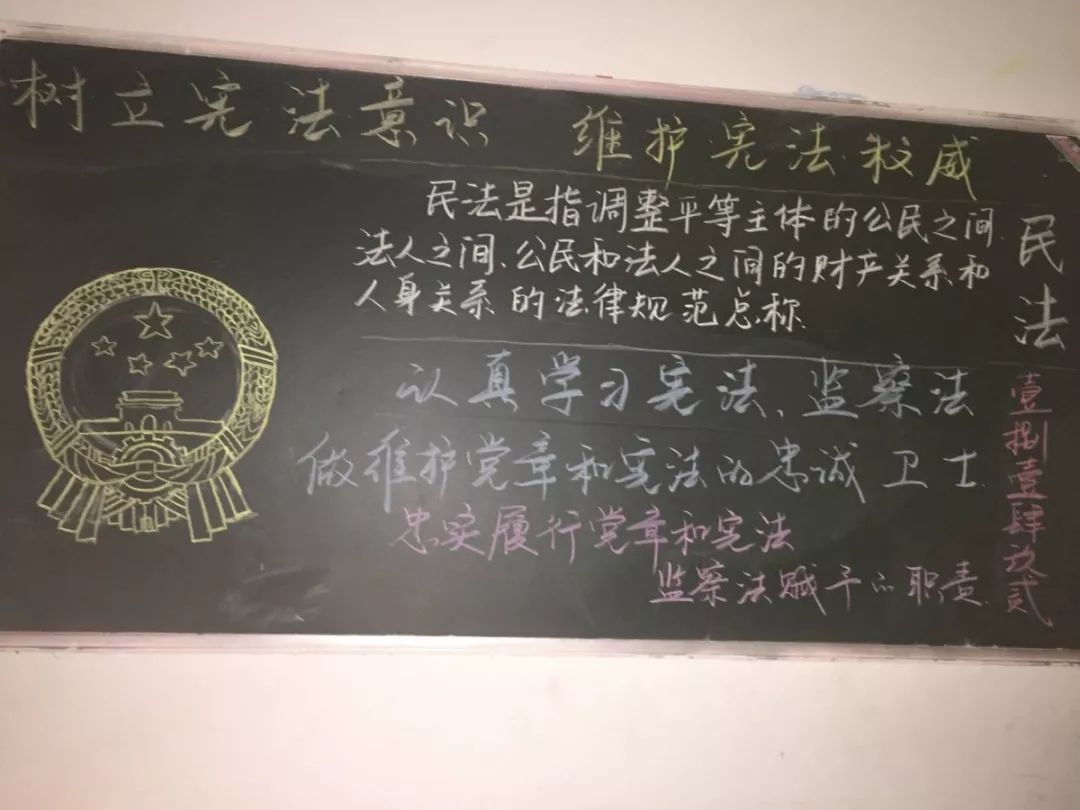 树立宪法意识 维护宪法权威
民法是指调整平等主体的公民之间
法人之间、公民和法人之间的财产关系和
人身关系的法律规范总称
认真学习宪法、监察法
做维护党章和宪法的忠诚卫士
忠实履行党章和宪法
监察法赋予的职责
民法
壹捌壹肆玖贰